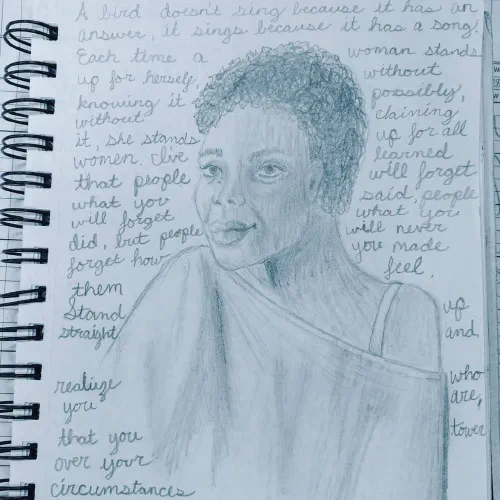 A bird doesn't sing because it has an
answer, it sings because it has a song.
Each time a woman stands
up for herself, without
knowing it possibly,
without claiming
it, she stands up for all
women. I've learned
that people will forget
what you said, people
will forget what you
did, but people will never
forget how you made
them feel.
Stand up
straight and
realize who
you are,
that you tower
over your
circumstances